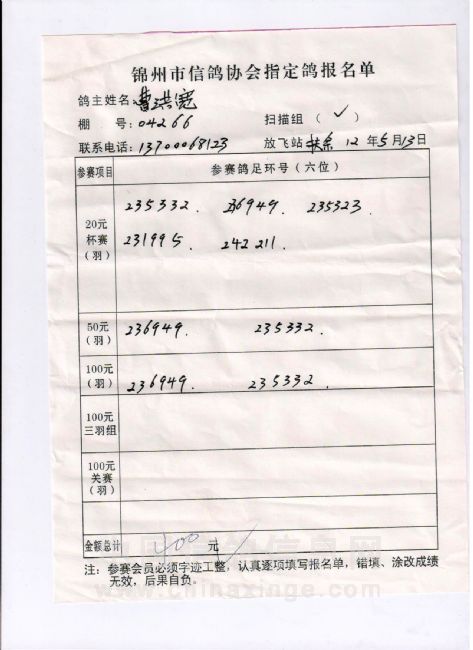 锦州市信鸽协会指定鸽报名单
鸽主姓名 曹洪宽
棚 号: 04266 扫描组 ( ✓ )
联系电话: 13700068123 放飞站 扶余 12 年 5 月 13 日
参赛项目 参赛鸽足环号(六位)
20元 杯赛 (羽) 235332. 236949. 235323
231995. 242211.
50元 (羽) 236949. 235332.
100元 (羽) 236949. 235332.
100元 三羽组
100元 关赛 (羽)
金额总计 400 元
注: 参赛会员必须字迹工整, 认真逐项填写报名单, 错填、涂改成绩
无效, 后果自负。
www.chinaxinge.com